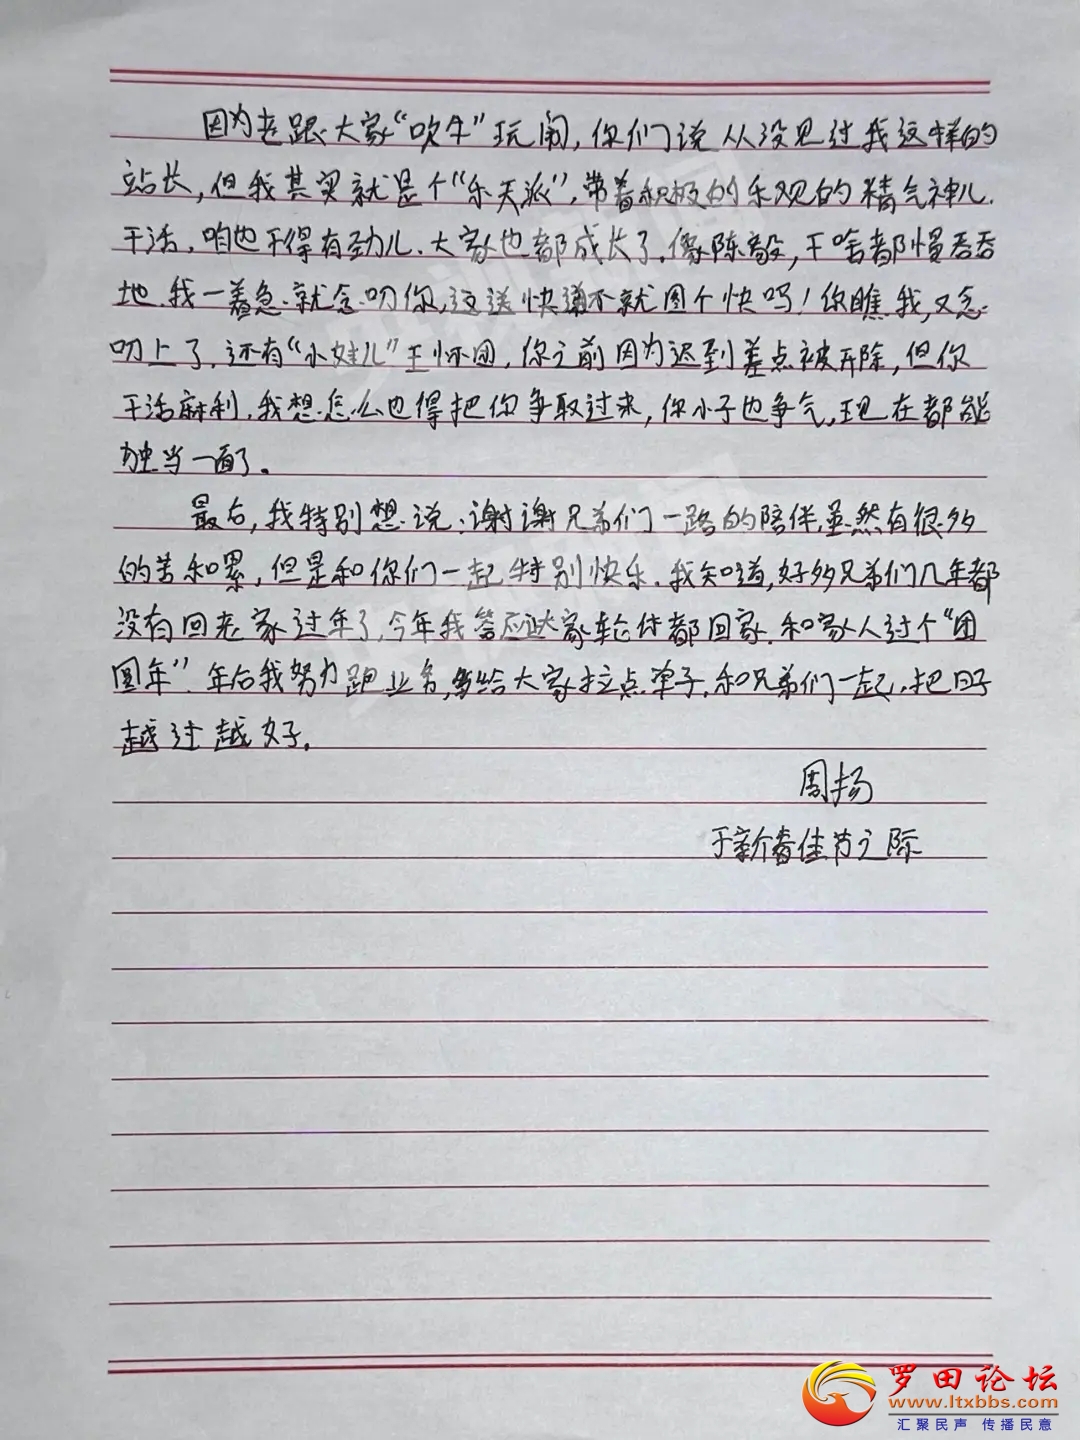 因为老跟大家“吹牛”玩闹，你们说从没见过我这样的
站长，但我其实就是个“乐天派”，带着积极的乐观的精气神儿
干活，咱也干得有劲儿。大家也都成长了。像陈毅，干啥都慢吞吞
地，我一着急就念叨你，这送快递不就图个快吗！你瞧我，又念
叨上了。还有“小娃儿”王怀国，你之前因为迟到差点被开除，但你
干活麻利，我想怎么也得把你争取过来，你小子也争气，现在都能
独当一面了。
最后，我特别想说：谢谢兄弟们一路的陪伴，虽然有很多
的苦和累，但是和你们一起特别快乐。我知道，好多兄弟们几年都
没有回老家过年了，今年我答应大家轮休都回家，和家人过个“团
圆年”。年后我努力跑业务，多给大家拉点单子，和兄弟们一起，把日子
越过越好。
周扬
于新春佳节之际
罗田论坛
www.ltxbbs.com
汇聚民声 传播民意